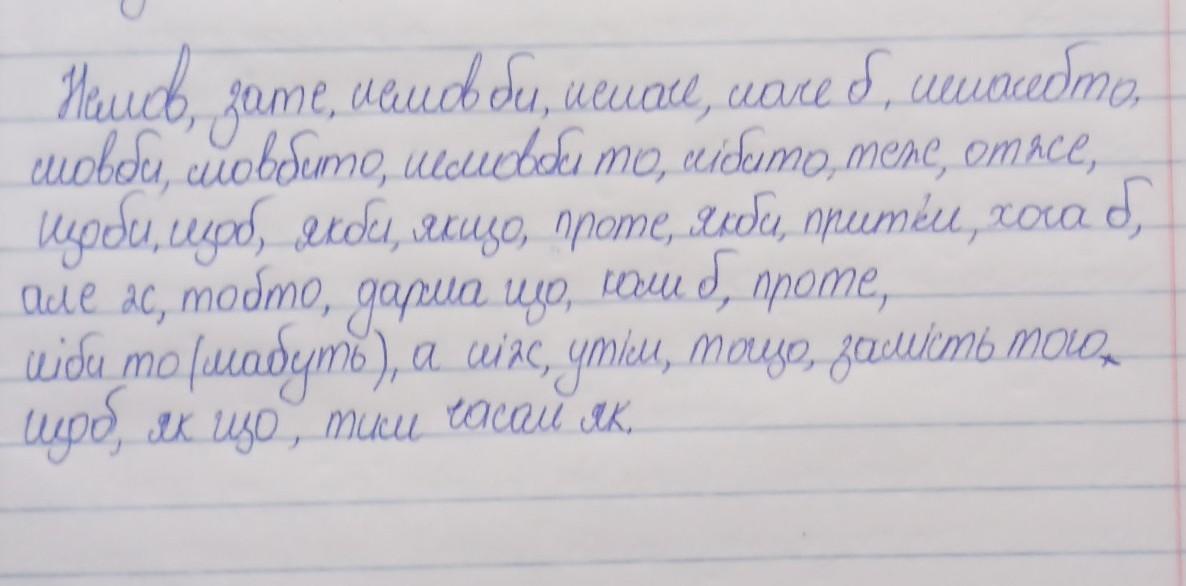 Немов, зате, немов би, неначе, наче б, неначебто,
мовби, мовбито, немовби то, нібито, теже, отже,
щоби, щоб, якби, якщо, проте, якби, притім, хоча б,
але ж, тобто, дарма що, коли б, проте,
ніби то (мабуть), а ніж, утім, тощо, замість того,
щоб, як що, тим часом як.